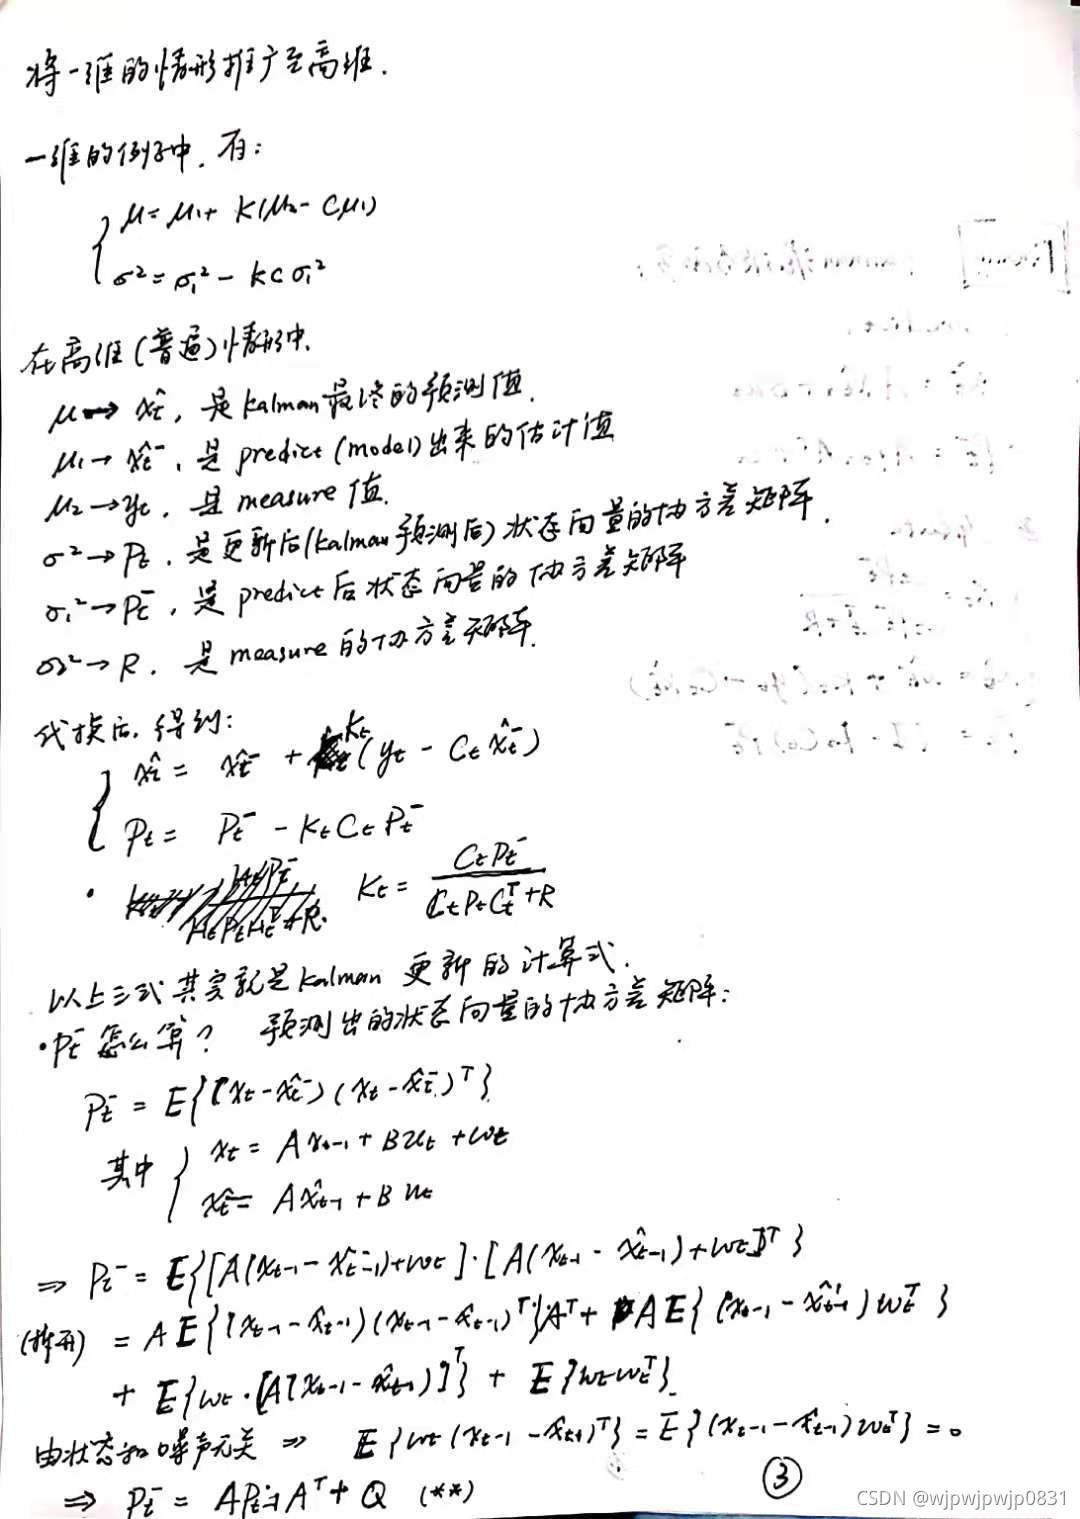 将一维的情形推广至高维.
一维的例子中, 有:
μ = μ₁ + K(μ₂ - Cμ₁)
σ² = σ₁² - KCσ₁²
在高维(普遍)情形中.
μ → x̂t, 是kalman最终的预测值.
μ₁ → x̂t⁻, 是predict(model)出来的估计值
μ₂ → yt, 是measure值.
σ² → Pt, 是更新后(kalman预测后)状态向量的协方差矩阵.
σ₁² → Pt⁻, 是predict后状态向量的协方差矩阵
σ₂² → R, 是measure的协方差矩阵.
代换后, 得到:
x̂t = x̂t⁻ + Kt(yt - Ct x̂t⁻)
Pt = Pt⁻ - Kt Ct Pt⁻
• Kt = CtPt⁻ / (CtPtCtᵀ + R)
以上三式其实就是kalman更新的计算式.
• Pt⁻怎么算? 预测出的状态向量的协方差矩阵:
Pt⁻ = E{(xt - x̂t⁻)(xt - x̂t⁻)ᵀ}
其中 xt = Axt-1 + But + wt
x̂t⁻ = Ax̂t-1 + But
⇒ Pt⁻ = E{[A(xt-1 - x̂t-1⁻) + wt]·[A(xt-1 - x̂t-1) + wt]ᵀ}
(拆开) = AE{(xt-1 - x̂t-1)(xt-1 - x̂t-1)ᵀ}Aᵀ + AE{(xt-1 - x̂t-1)wtᵀ}
+ E{wt·[A(xt-1 - x̂t-1)]ᵀ} + E{wtwtᵀ}
由状态和噪声无关 ⇒ E{wt(xt-1 - x̂t-1)ᵀ} = E{(xt-1 - x̂t-1)wtᵀ} = 0
⇒ Pt⁻ = APt-1Aᵀ + Q (**)
③
CSDN @wjpwjpwjp0831